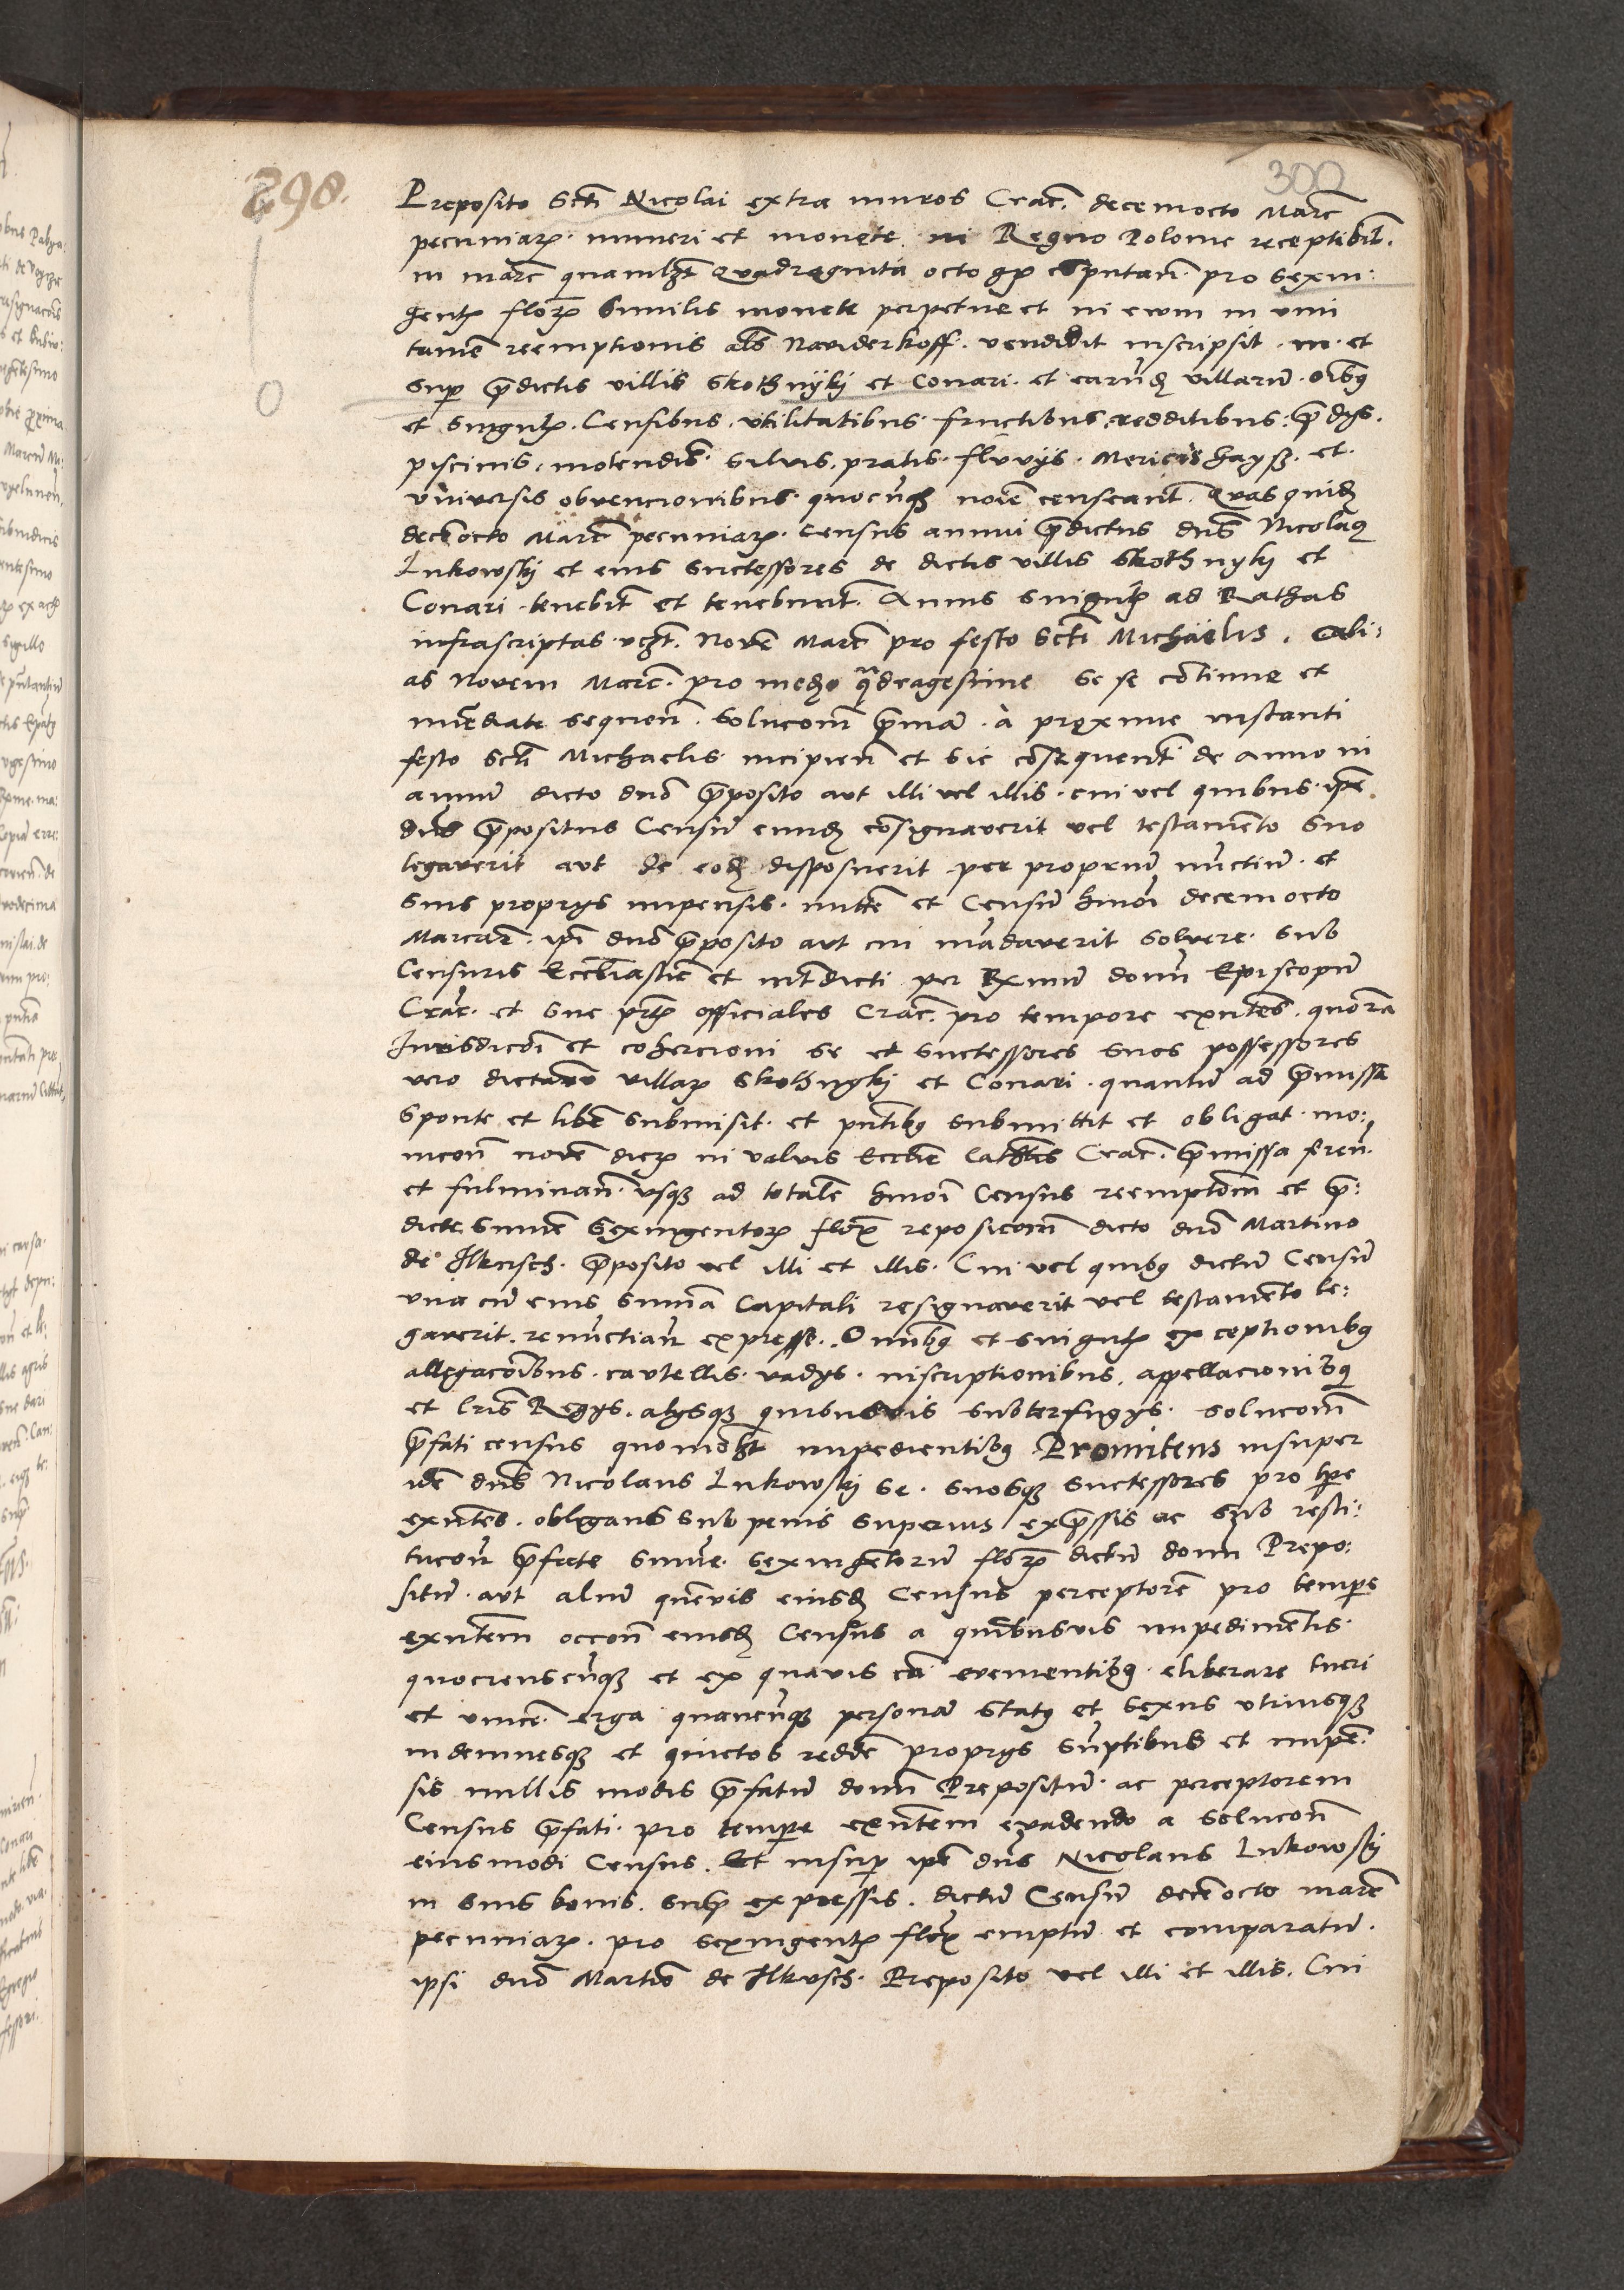 298.
300
Preposito Scti Nicolai extra muros Crac. decemocto Marc
pecuniarz. numeri et monete in Regno Polonie receptibit.
in marc quamlzt Quadraginta octo grz computan. pro Sexin:
gentz florz Similis monete perpetue et in ewm in vim
tamen reemptionis als Naviderkoff. vendidit inscripsit. in et
sup predictis villis Skothnyky et Conari. et earund villarum. oibus
et singulz. Censibus. vtilitatibus fructibus. redditibus: predys.
piscinis. molendis. Siluis. pratis. fluvys. Mericis hayß. et.
vniversis obvencionibus. quocunqz noie censeant. Quasquid
decemocto Marc pecuniarz. Census annui predictus dns Nicolaus
Lukowsky et eius Successores de dictis villis Skothnyky et
Conari. tenebit et tenebunt. Annis singulz ad Rathas
infrascriptas. vczt. Novem Marc pro festo Scti Michaelis. Et ali:
as Novem Marc. pro medio quadragesime se se continue et
mediate sequen. Solucom primam. a proxime instanti
festo Scti Michaelis. incipien et sic consequent. de anno in
annum dicto dno preposito aut illi vel illis. cui vel quibus ipse
dns prepositus Censum eund consignaverit vel testamento suo
legaverit aut de eod disposuerit per proprium nunctium. et
suis proprys impensis. mitte et Censum hmoi decemocto
Marcarz. ipi dno preposito aut cui mandaverit solvere. sub
Censuris Ecclesiastic et intdicti per Rxmum domn Episcopum
Crac. et sue prtz officiales Crac. pro tempore exntes. quorz
Jurisdicioi et cohercioni se et successores suos possessores
vero dictarum villarz Skothnyky et Conari. quantum ad premissa
Sponte et libe submisit. et pntibus submittit et obligat. mo:
nicon novem dierz in valvis Ecclie Cathlis Crac. premissa feren.
et fulminan. vsqz ad totale hmoi Census reemptiom et pre:
dicte summe Sexingentorz florz reposiciom dicto dno Martino
de Ilkusch. preposito vel illi et illis. Cui vel quibus dictum Censum
vna cum eius summa Capitali resignaverit vel testamento le:
gaverit. renunctian expresse. Omibus et singulz exceptionibus
allegacoibus. cautellis. vadys. inscriptionibus. appellacionibus
et lris Regys. alysqz quibusvis subterfugys. solucom
prefati census quomodolzt impedientibus Promittens insuper
idem dns Nicolaus Lukowsky se. suosqz successores pro tpe
exntes. obligans sub penis superius expressis ac sub resti:
tucon prefate summe. Sexingentorum florz dictum domn Prepo:
situm. aut alium quemvis eiusd Census perceptorem pro tempore
exntem occon eiusd Census a quibusvis impedimentis.
quocienscunqz et ex quavis ca evenientibus. eliberare tueri
et vince. erga quamcunqz personam status et sexus vtriusqz
indemnesqz et quietos redde proprys sumptibus et impen:
sis nullis modis prefatum domn Prepositum. ac perceptorem
Census prefati. pro tempore exntem evadendo a solucon
eiusmodi Census. Et insup ipse dns Nicolaus Lukowsky
in suis bonis. sup expressis. dictum Censum decemocto marc
pecuniarz. pro sexingentz florz emptum et comparatum.
ipsi dno Martino de Ilkusch. Preposito vel illi et illis. Cui